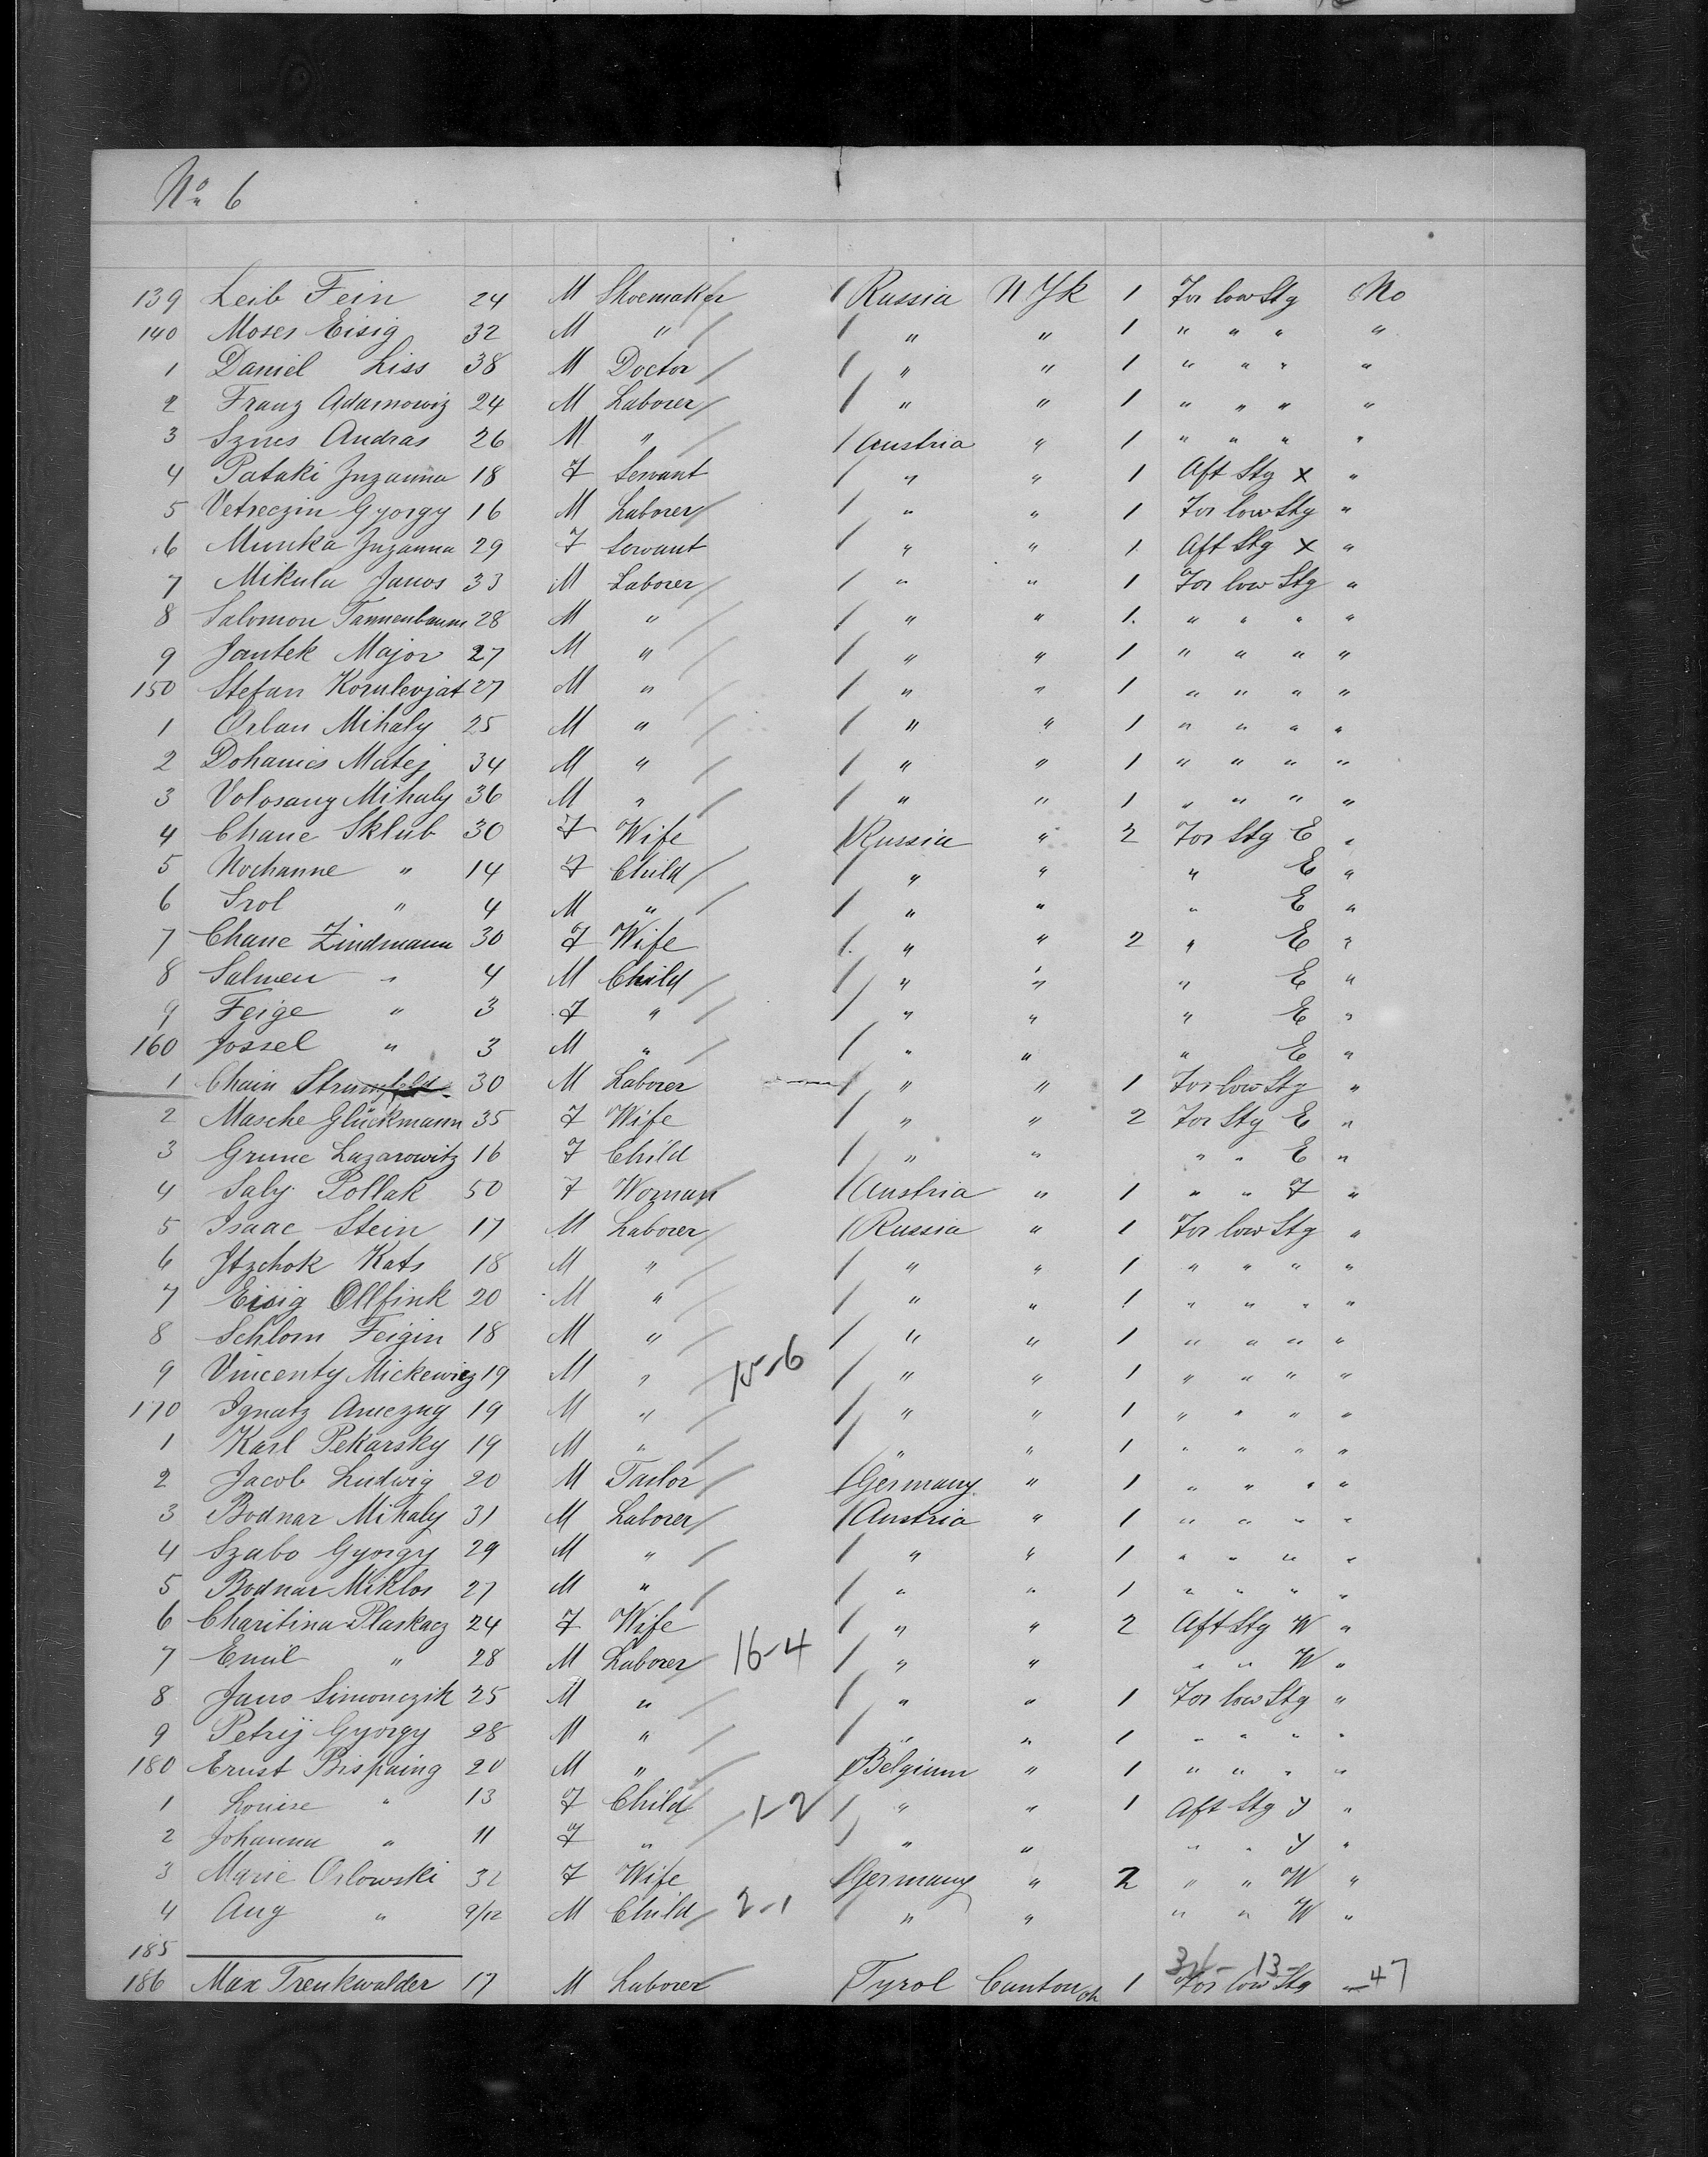 No 6
139 Leib Fein 24 M Shoemaker / Russia N Yk 1 For low Stg No
140 Moses Eisig 32 M " / " " 1 " " " "
1 Daniel Liss 38 M Doctor / " " 1 " " " "
2 Franz Adamowiz 24 M Laborer / " " 1 " " " "
3 Sznes Andras 26 M " / Austria " 1 " " " "
4 Pataki Zuzanna 18 F Servant / " " 1 Aft Stg X "
5 Vetreczin Gyorgy 16 M Laborer / " " 1 For low Stg "
6 Munka Zuzanna 29 F Servant / " " 1 Aft Stg X "
7 Mikula Janos 33 M Laborer / " " 1 For low Stg "
8 Salomon Tannenbaum 28 M " / " " 1 " " " "
9 Jantek Major 27 M " / " " 1 " " " "
150 Stefan Korulevjat 27 M " / " " 1 " " " "
1 Orlan Mihaly 25 M " / " " 1 " " " "
2 Dohanics Matej 34 M " / " " 1 " " " "
3 Volosany Mihaly 36 M " / " " 1 " " " "
4 Chane Sklub 30 F Wife / Russia " 2 For Stg E "
5 Nochanne " 14 F Child / " " " E "
6 Srol " 4 M " / " " " E "
7 Chane Zindmann 30 F Wife / " " 2 " E "
8 Salmen " 4 M Child / " " " E "
9 Feige " 3 F " / " " " E "
160 Jossel " 3 M " / " " " E "
1 Chain Strumfeld 30 M Laborer / " " 1 For low Stg "
2 Masche Glückmann 35 F Wife / " " 2 For Stg E "
3 Grune Lazarowitz 16 F Child / " " " " E "
4 Saly Pollak 50 F Woman / Austria " 1 " " F "
5 Isaac Stein 17 M Laborer / Russia " 1 For low Stg "
6 Itzchok Kats 18 M " / " " 1 " " " "
7 Eisig Ollfink 20 M " / " " 1 " " " "
8 Schlom Feigin 18 M " / " " 1 " " " "
9 Vincenty Mickewicz 19 M " 15-6 / " " 1 " " " "
170 Ignatz Ameczny 19 M " / " " 1 " " " "
1 Karl Pekarsky 19 M " / " " 1 " " " "
2 Jacob Ludwig 20 M Tailor / Germany " 1 " " " "
3 Bodnar Mihaly 31 M Laborer / Austria " 1 " " " "
4 Szabo Gyorgy 29 M " / " " 1 " " " "
5 Bodnar Miklos 27 M " / " " 1 " " " "
6 Charitina Plaskacz 24 F Wife / " " 2 Aft Stg W "
7 Emil " 28 M Laborer 16-4 / " " " " W "
8 Jano Simonczik 25 M " / " " 1 For low Stg "
9 Petrij Gyorgy 28 M " / " " 1 " " " "
180 Ernst Bispaing 20 M " / Belgium " 1 " " " "
1 Louise " 13 F Child 1-2 / " " 1 Aft Stg Y "
2 Johanna " 11 F " / " " " " Y "
3 Marie Orlowski 32 F Wife / Germany " 2 " " W "
4 Aug " 9/12 M Child 2-1 / " " " " W "
185
34- 13- 47
186 Max Trenkwalder 17 M Laborer / Tyrol Canton Oh 1 For low Stg "